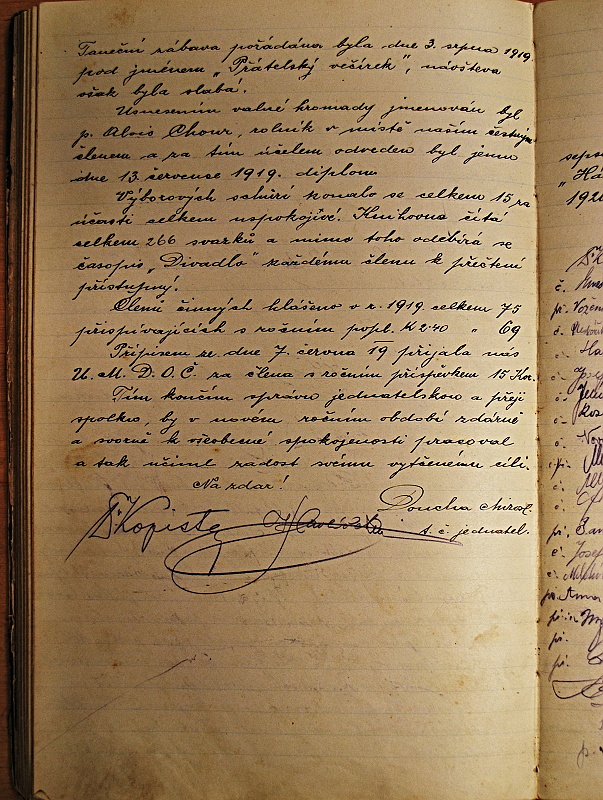 Taneční zábava pořádána byla dne 3. srpna 1919.
pod jménem „Přátelský večírek", návštěva
však byla slabá.
Usnesením valné hromady jmenován byl
p. Alois Chour, rolník v místě naším čestným
členem a za tím účelem odveden byl jemu
dne 13. července 1919. diplom.
Výborových schůzí konalo se celkem 15 za
účasti celkem uspokojivé. Knihovna čítá
celkem 266 svazků a mimo toho odebírá se
časopis „Divadlo" každému členu k přečtení
přístupný.
Členů činných hlášeno v r. 1919. celkem 75
přispívajících s ročním popl. K 2·40 " 69
Přípisem ze dne 7. června 19 přijala nás
Ú. M. D. O. Č. za člena s ročním příspěvkem 15 Kor.
Tím končím zprávu jednatelskou a přeji
spolku, by v novém ročním období zdárně
a svorně k všeobecné spokojenosti pracoval
a tak učinil radost svému vytčenému cíli.
Na zdar!
Doucha
t. č. jednatel.
Kopista
sepsa
„Há
1920